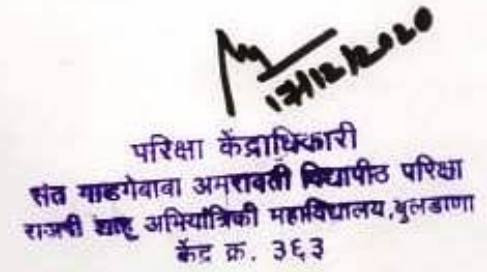 17/12/2020
परिक्षा केंद्राधिकारी
संत गाडगेबावा अमरावती विद्यापीठ परिक्षा
राजर्षी शाहू अभियांत्रिकी महाविद्यालय,बुलडाणा
केंद्र क्र. ३६३